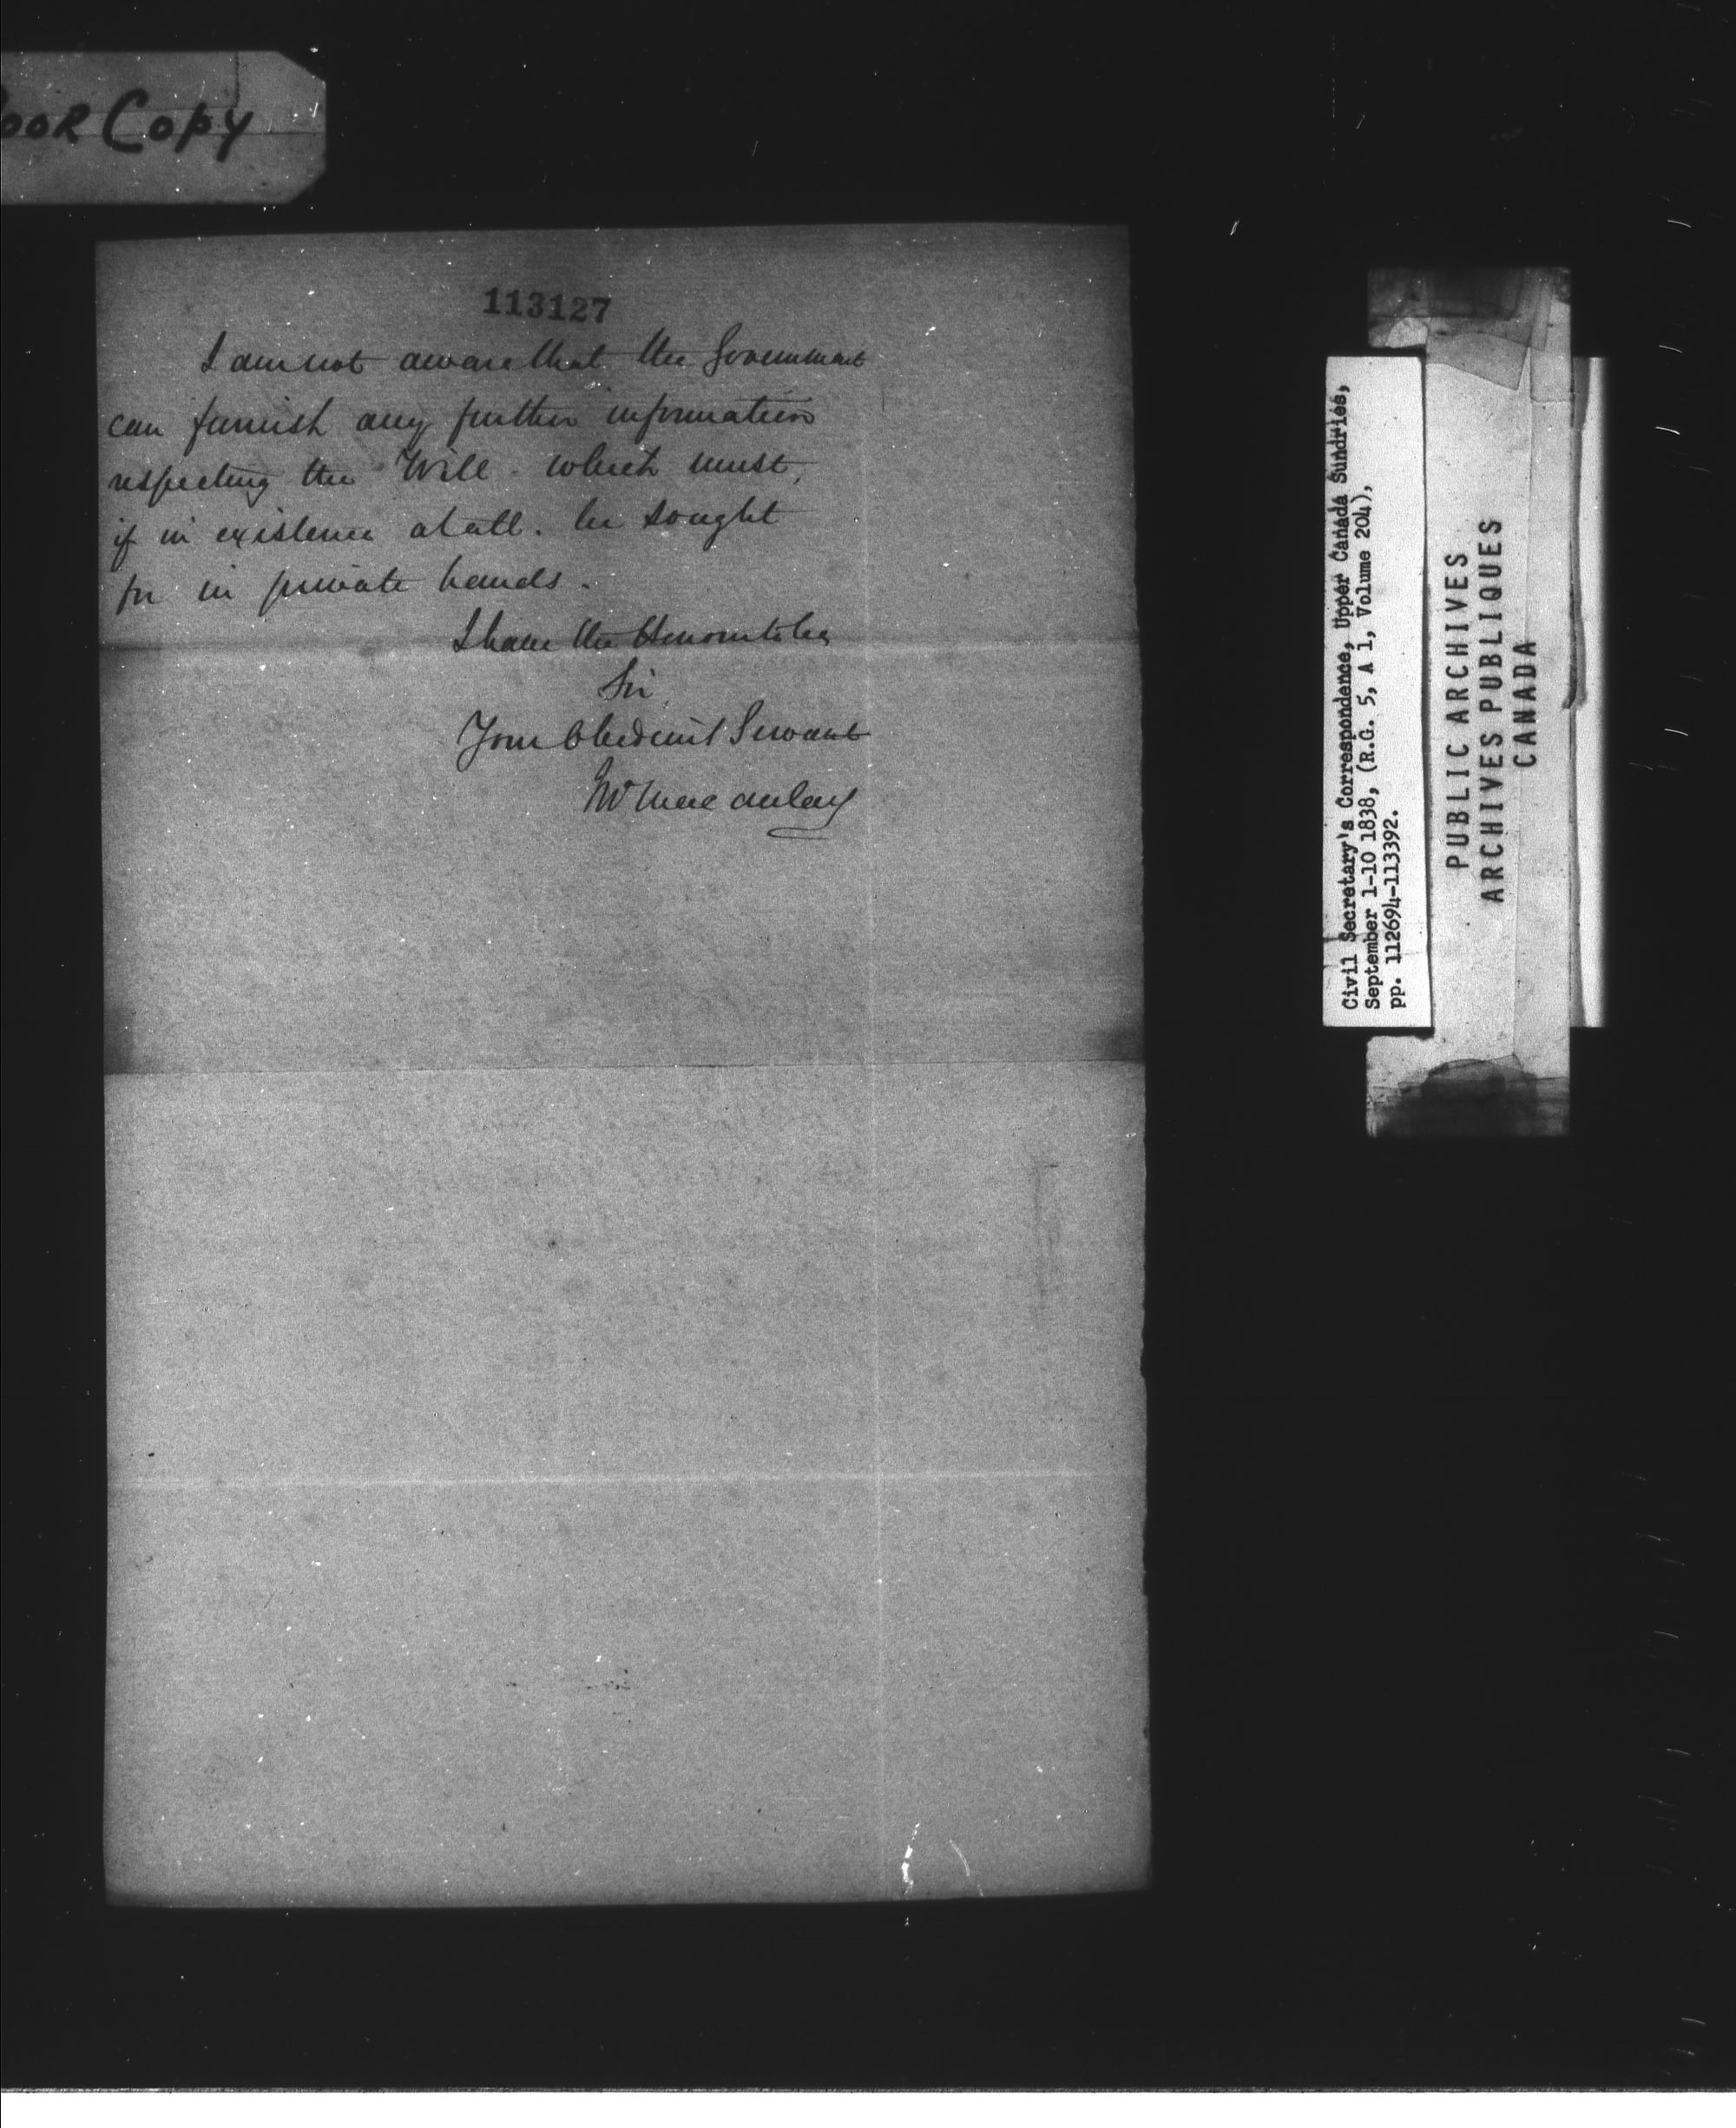 Poor Copy
113127
I am not aware that the Government
can furnish any further information
respecting the Will - which must,
if in existence at all. be sought
for in private hands.
I have the Honour to be
Sir
Your Obedient Servant
Macaulay
Civil Secretary's Correspondence, Upper Canada Sundries,
September 1-10 1838, (R.G. 5, A 1, Volume 204),
pp. 112694-113392.
PUBLIC ARCHIVES
ARCHIVES PUBLIQUES
CANADA